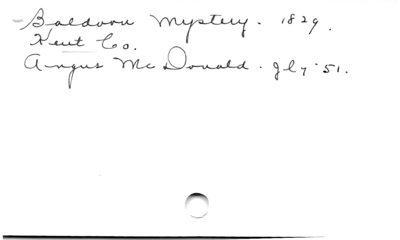 Baldoon Mystery. 1829.
Kent Co.
Angus McDonald. Gl 7 '51.